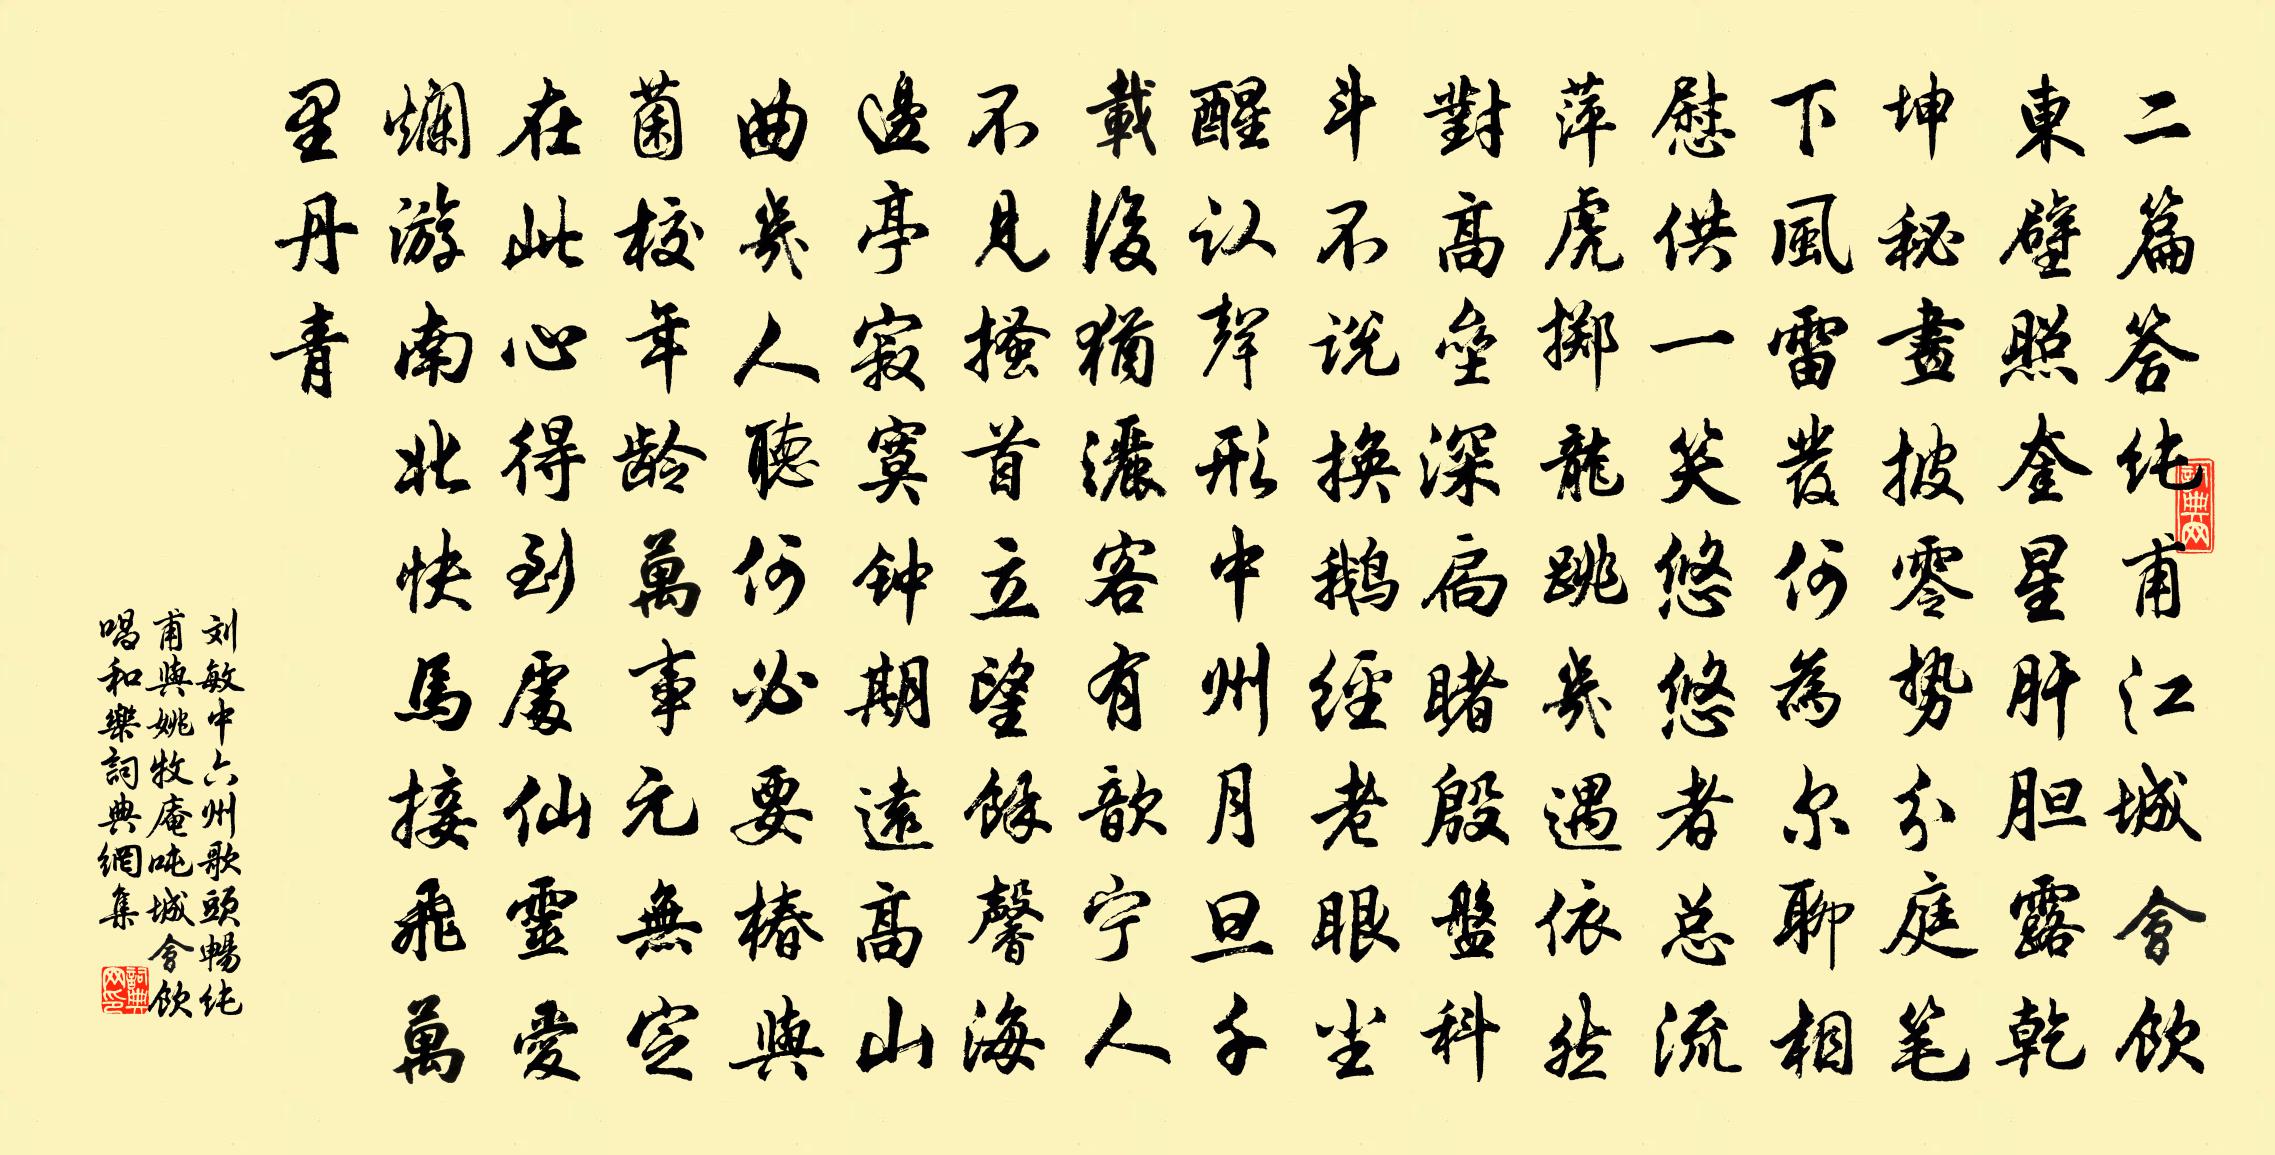 二篇答纯甫江城會飲
東壁照奎星肝胆露乾
坤秘畫披零勢分庭笔
下風雷發何為尔聊相
慰供一笑悠悠者总流
萍虎擲龍跳幾遇依然
對高壘深扃睹殷盤科
斗不说换鹅經老眼坐
醒认聲形中州月旦千
載後猶灑客有歆宁人
不見搔首立望餘馨海
邊亭寂寞钟期遠高山
曲幾人聽何必要椿與
菌校年龄萬事元無定
在此心得到處仙靈愛
爛游南北快馬接飛萬
里丹青
刘敏中六州歌頭暢纯
甫與姚牧庵吨城會飲
唱和樂詞典網集
詞典网
詞典网印